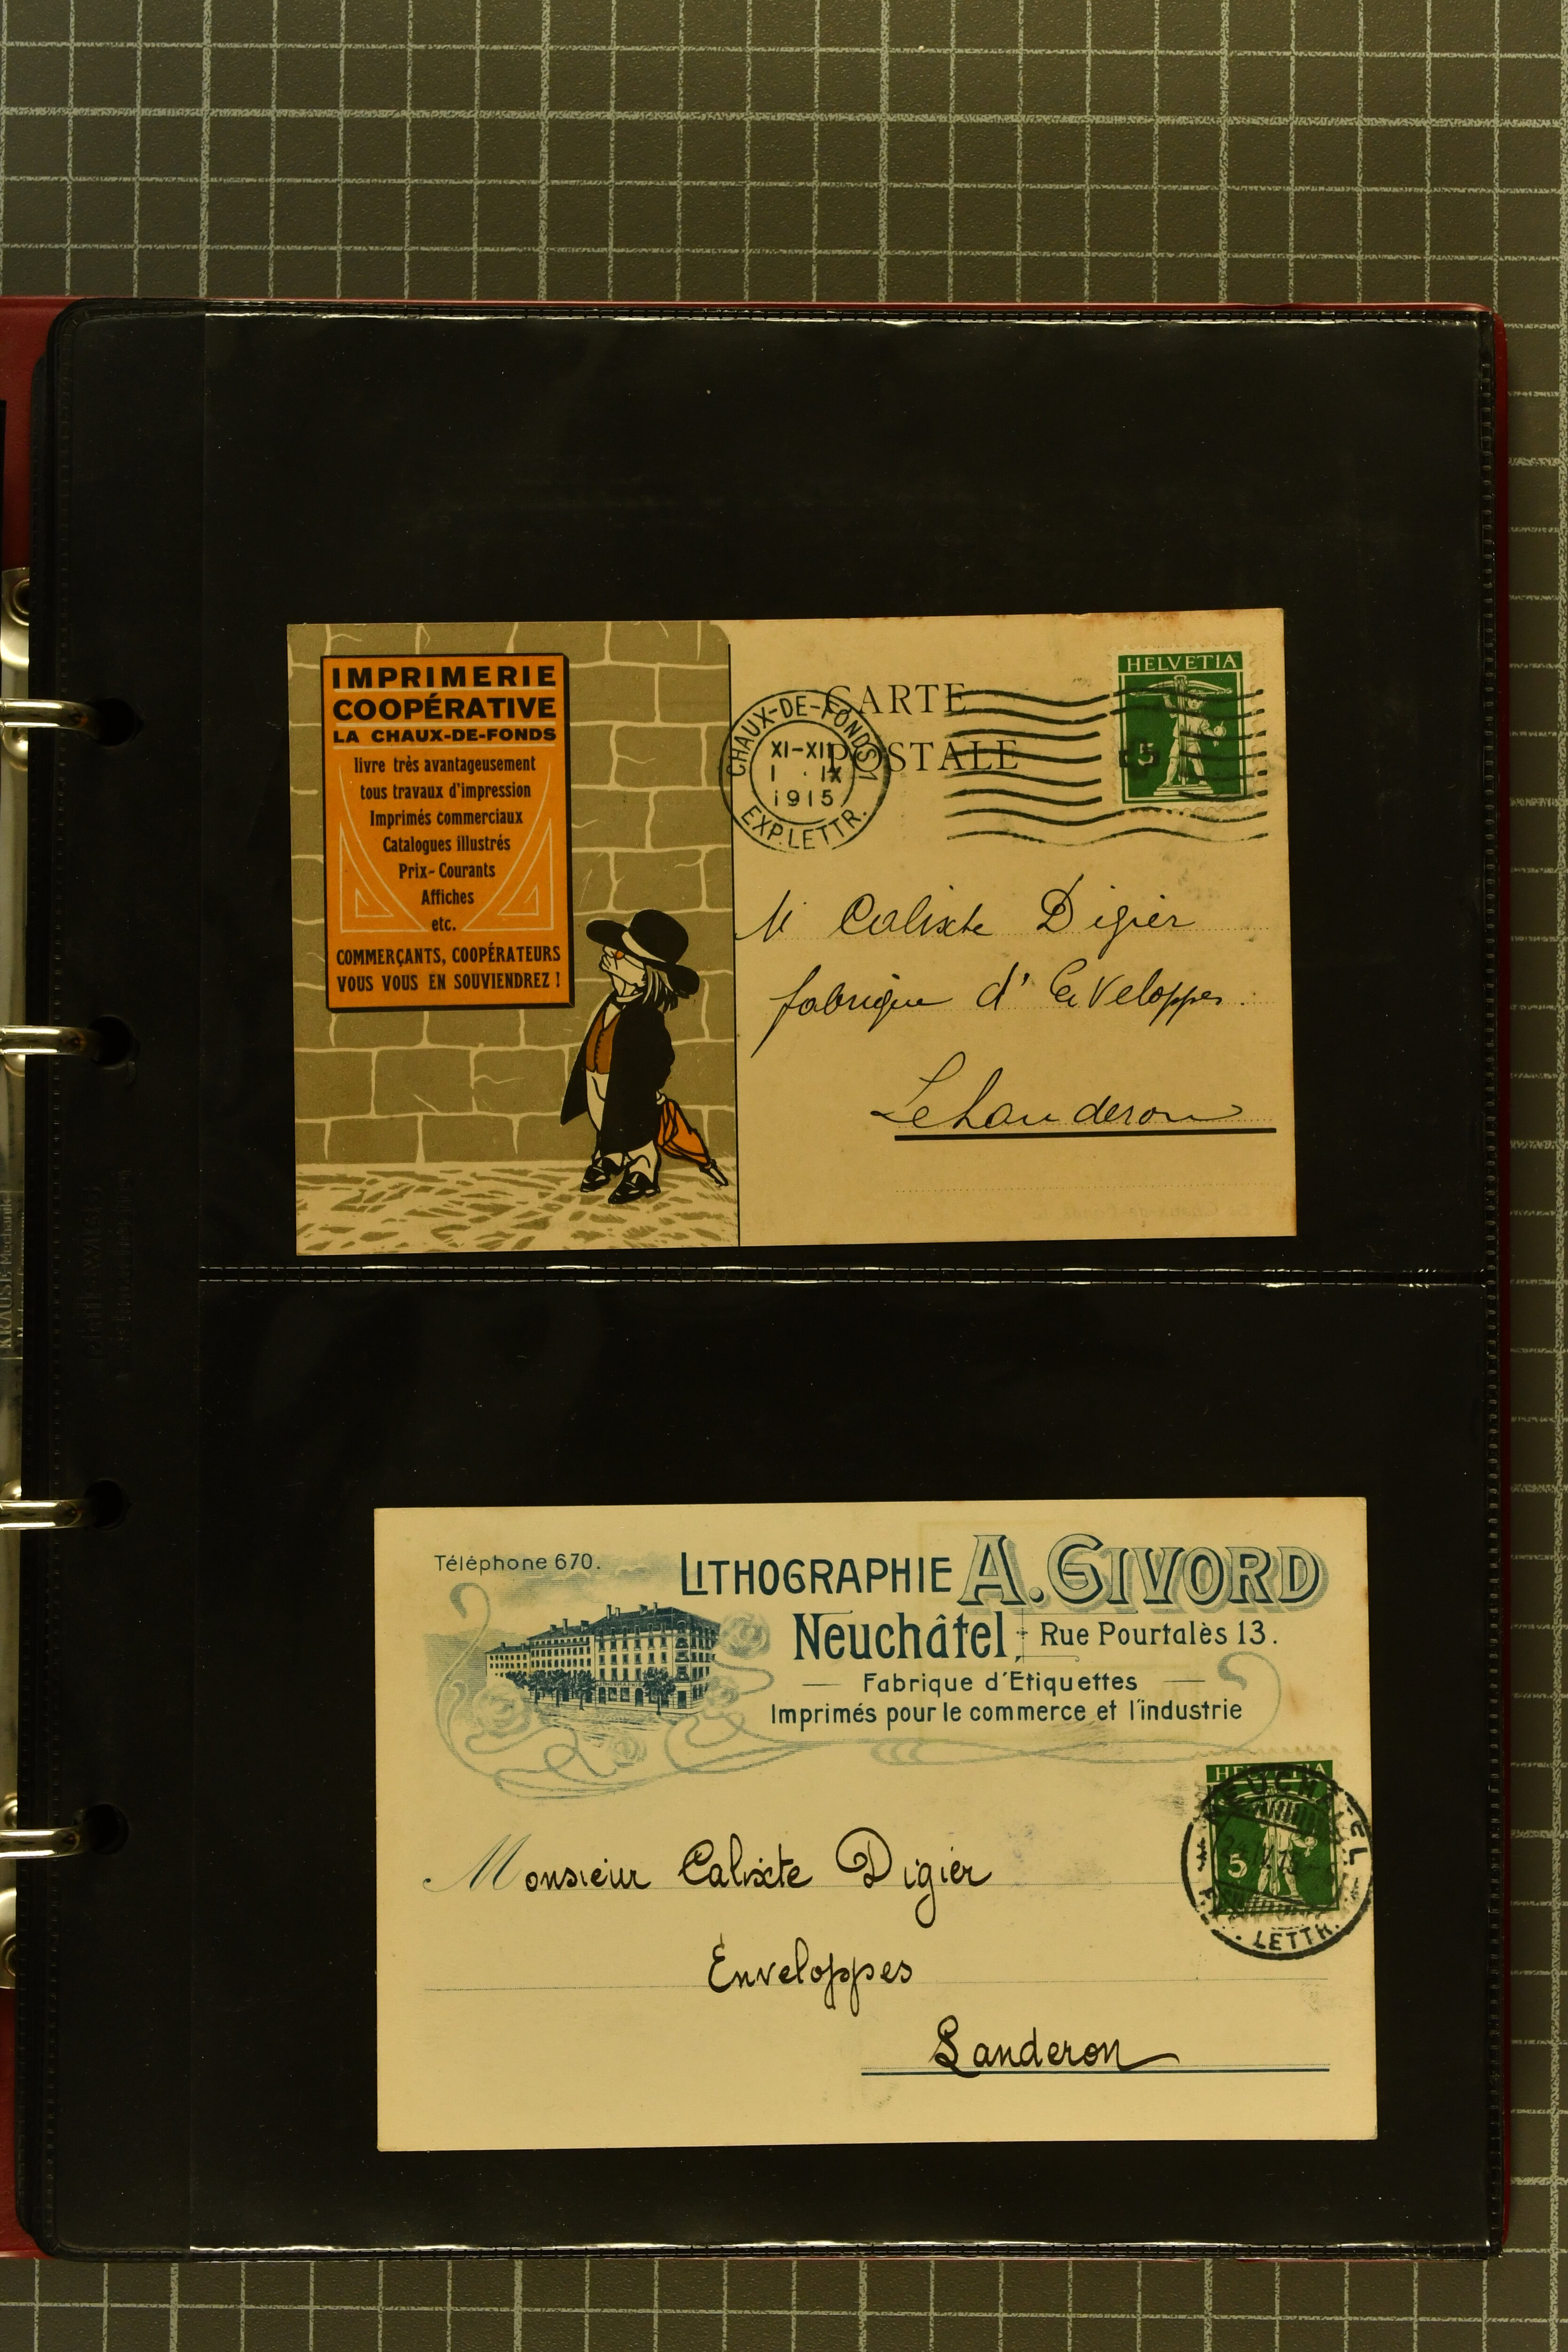 IMPRIMERIE
COOPÉRATIVE
LA CHAUX-DE-FONDS
livre très avantageusement
tous travaux d'impression
Imprimés commerciaux
Catalogues illustrés
Prix-Courants
Affiches
etc.
COMMERÇANTS, COOPÉRATEURS
VOUS VOUS EN SOUVIENDREZ !
CARTE
POSTALE
CHAUX-DE-FONDS 1
XI-XII
1 · IX
1915
EXP. LETTR.
HELVETIA
5
M Calixte Digier
fabrique d'Enveloppes.
Le Landeron
Téléphone 670.
LITHOGRAPHIE A. GIVORD
Neuchâtel, Rue Pourtalès 13.
Fabrique d'Etiquettes
Imprimés pour le commerce et l'industrie
HELVETIA
5
NEUCHATEL
LETTR.
Monsieur Calixte Digier
Enveloppes
Landeron
KRAUSE